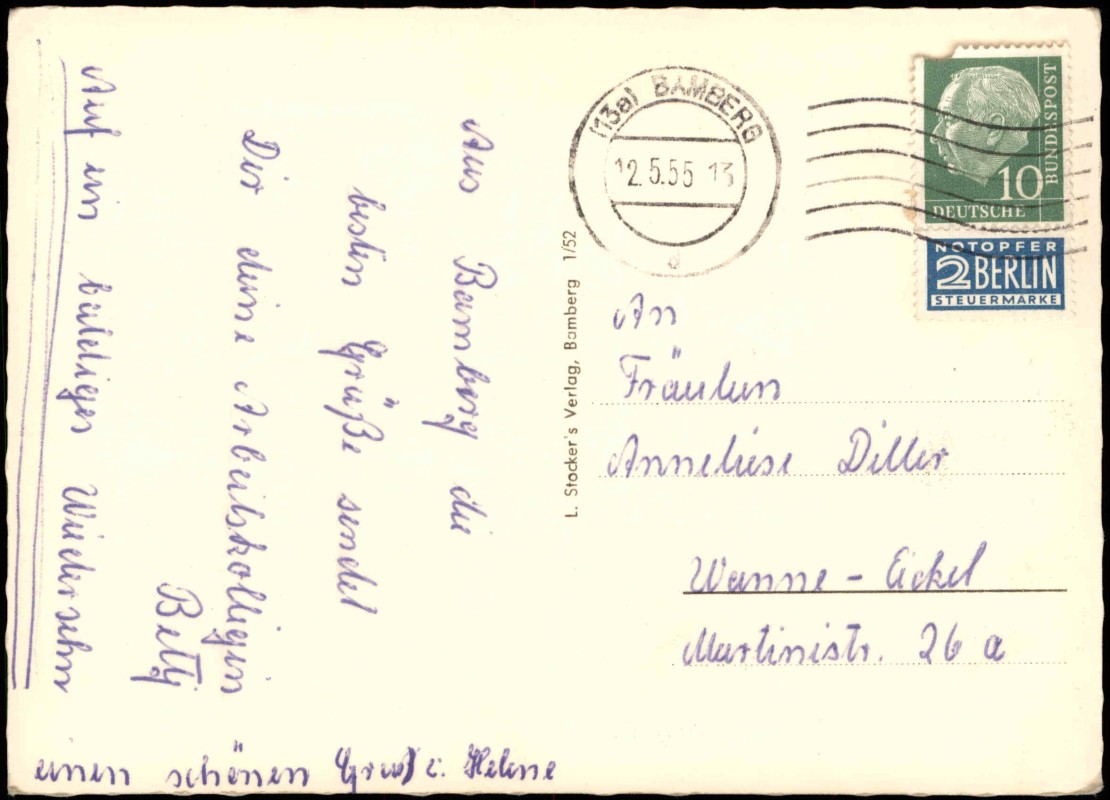 Aus Bamberg die
besten Grüße sendet
Dir deine Arbeitskollegin
Betty
Auf ein baldiges Wiedersehn
einen schönen Gruß v. Helene
L. Stocker's Verlag, Bamberg 1/52
(13a) BAMBERG
12.5.55 13
a
BUNDESPOST
10
DEUTSCHE
NOTOPFER
2 BERLIN
STEUERMARKE
An
Fräulein
Anneliese Diller
Wanne - Eickel
Martinistr. 26 a